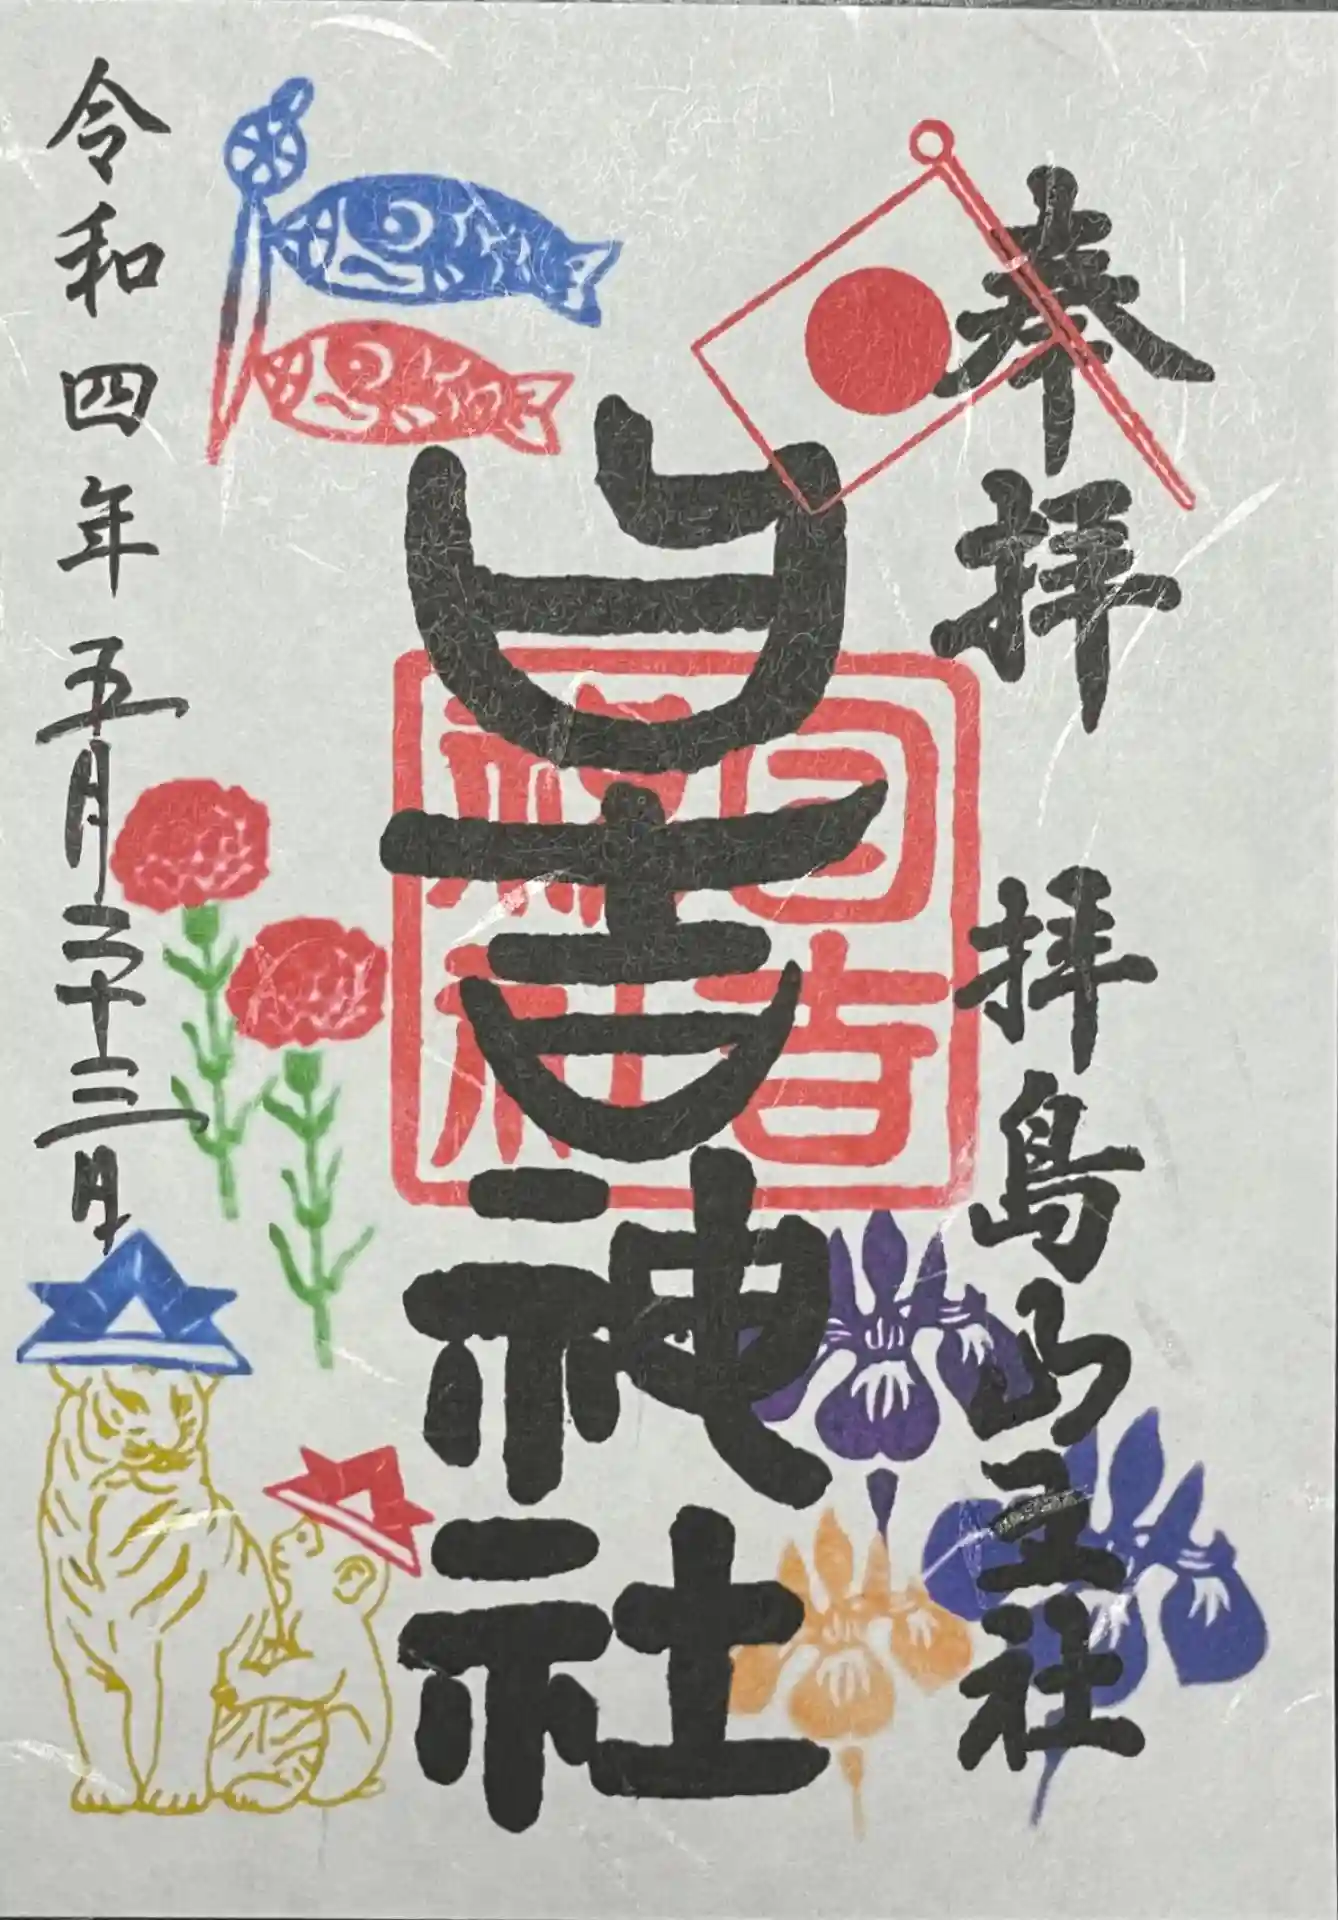 奉拝 拝島山王社
日吉神社
日吉神社
令和四年五月二十三日